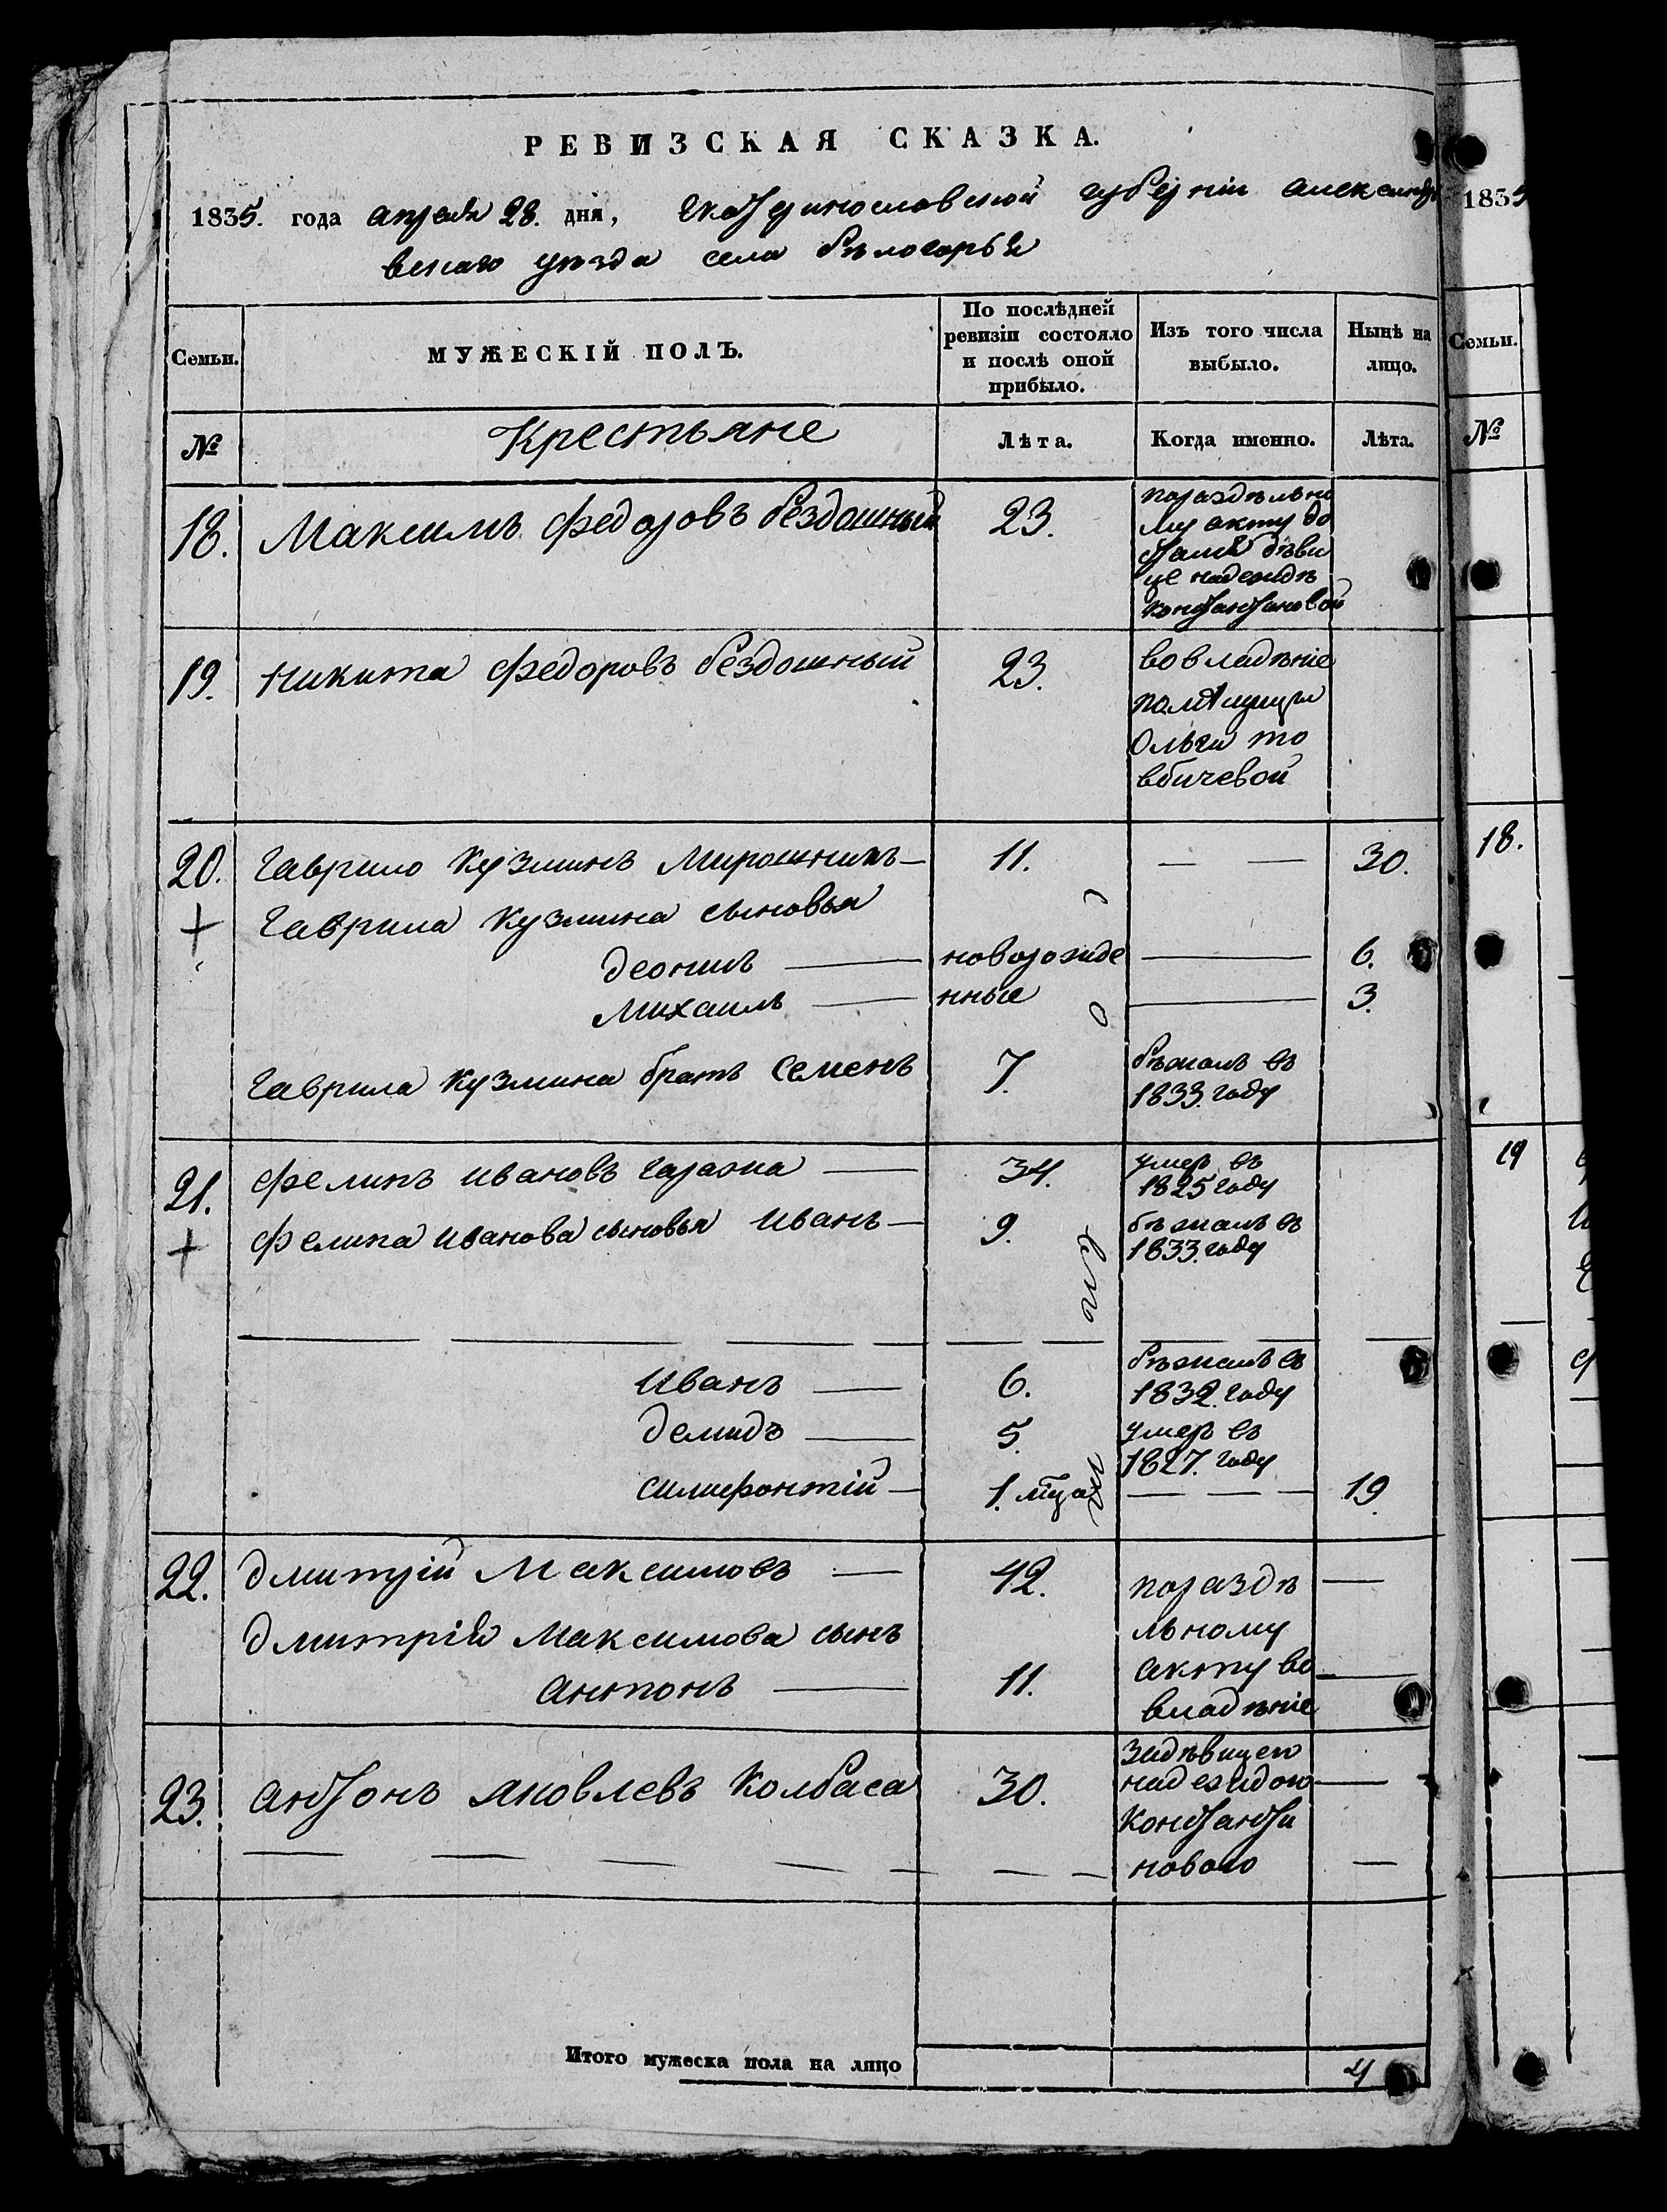 РЕВИЗСКАЯ СКАЗКА.
1835. года апреля 28. дня, Екатеринославской губернiи александро
вскаго уѣзда села бѣлогорья
Семьи.
МУЖЕСКIЙ ПОЛЪ.
По послѣдней
ревизiи состояло
и послѣ оной
прибыло.
Изъ того числа
выбыло.
Нынѣ на
лицо.
№
Крестьяне
Лѣта.
Когда именно.
Лѣта.
18. Максимъ федоровъ бездошный 23.
поразделно
му акту до
стался дѣви
це надеждѣ
константиновой
19. никита федоровъ бездошный 23.
вовладѣнiе
помѣщицы
Ольги то
вбичевой
20. гаврило кузминъ мирошникъ — 11. — — 30.
гаврила кузмина сыновья
деонисъ — новорожде — 6.
михаилъ — нные — 3.
гаврила кузмина братъ семенъ 7. бѣжалъ въ
1833. году
21. филипъ ивановъ гаража — 34. умеръ въ
1825 году
филипа иванова сыновья иванъ — 9. бѣжалъ въ
1833. году
иванъ — 6. бѣжалъ въ
1832. году
демидъ — 5. умеръ въ
1827. году
силифонтiй — 1. мца — — — 19
22. дмитрiй Максимовъ — 42. поразде —
дмитрiя максимова сынъ льному
антонъ — 11. акту во —
владѣнiе
23. антонъ яковлевъ колбаса 30.
задѣвицею
надеждою —
константи
новою —
Итого мужеска пола на лицо 4
1835
Семьи.
№
18.
19